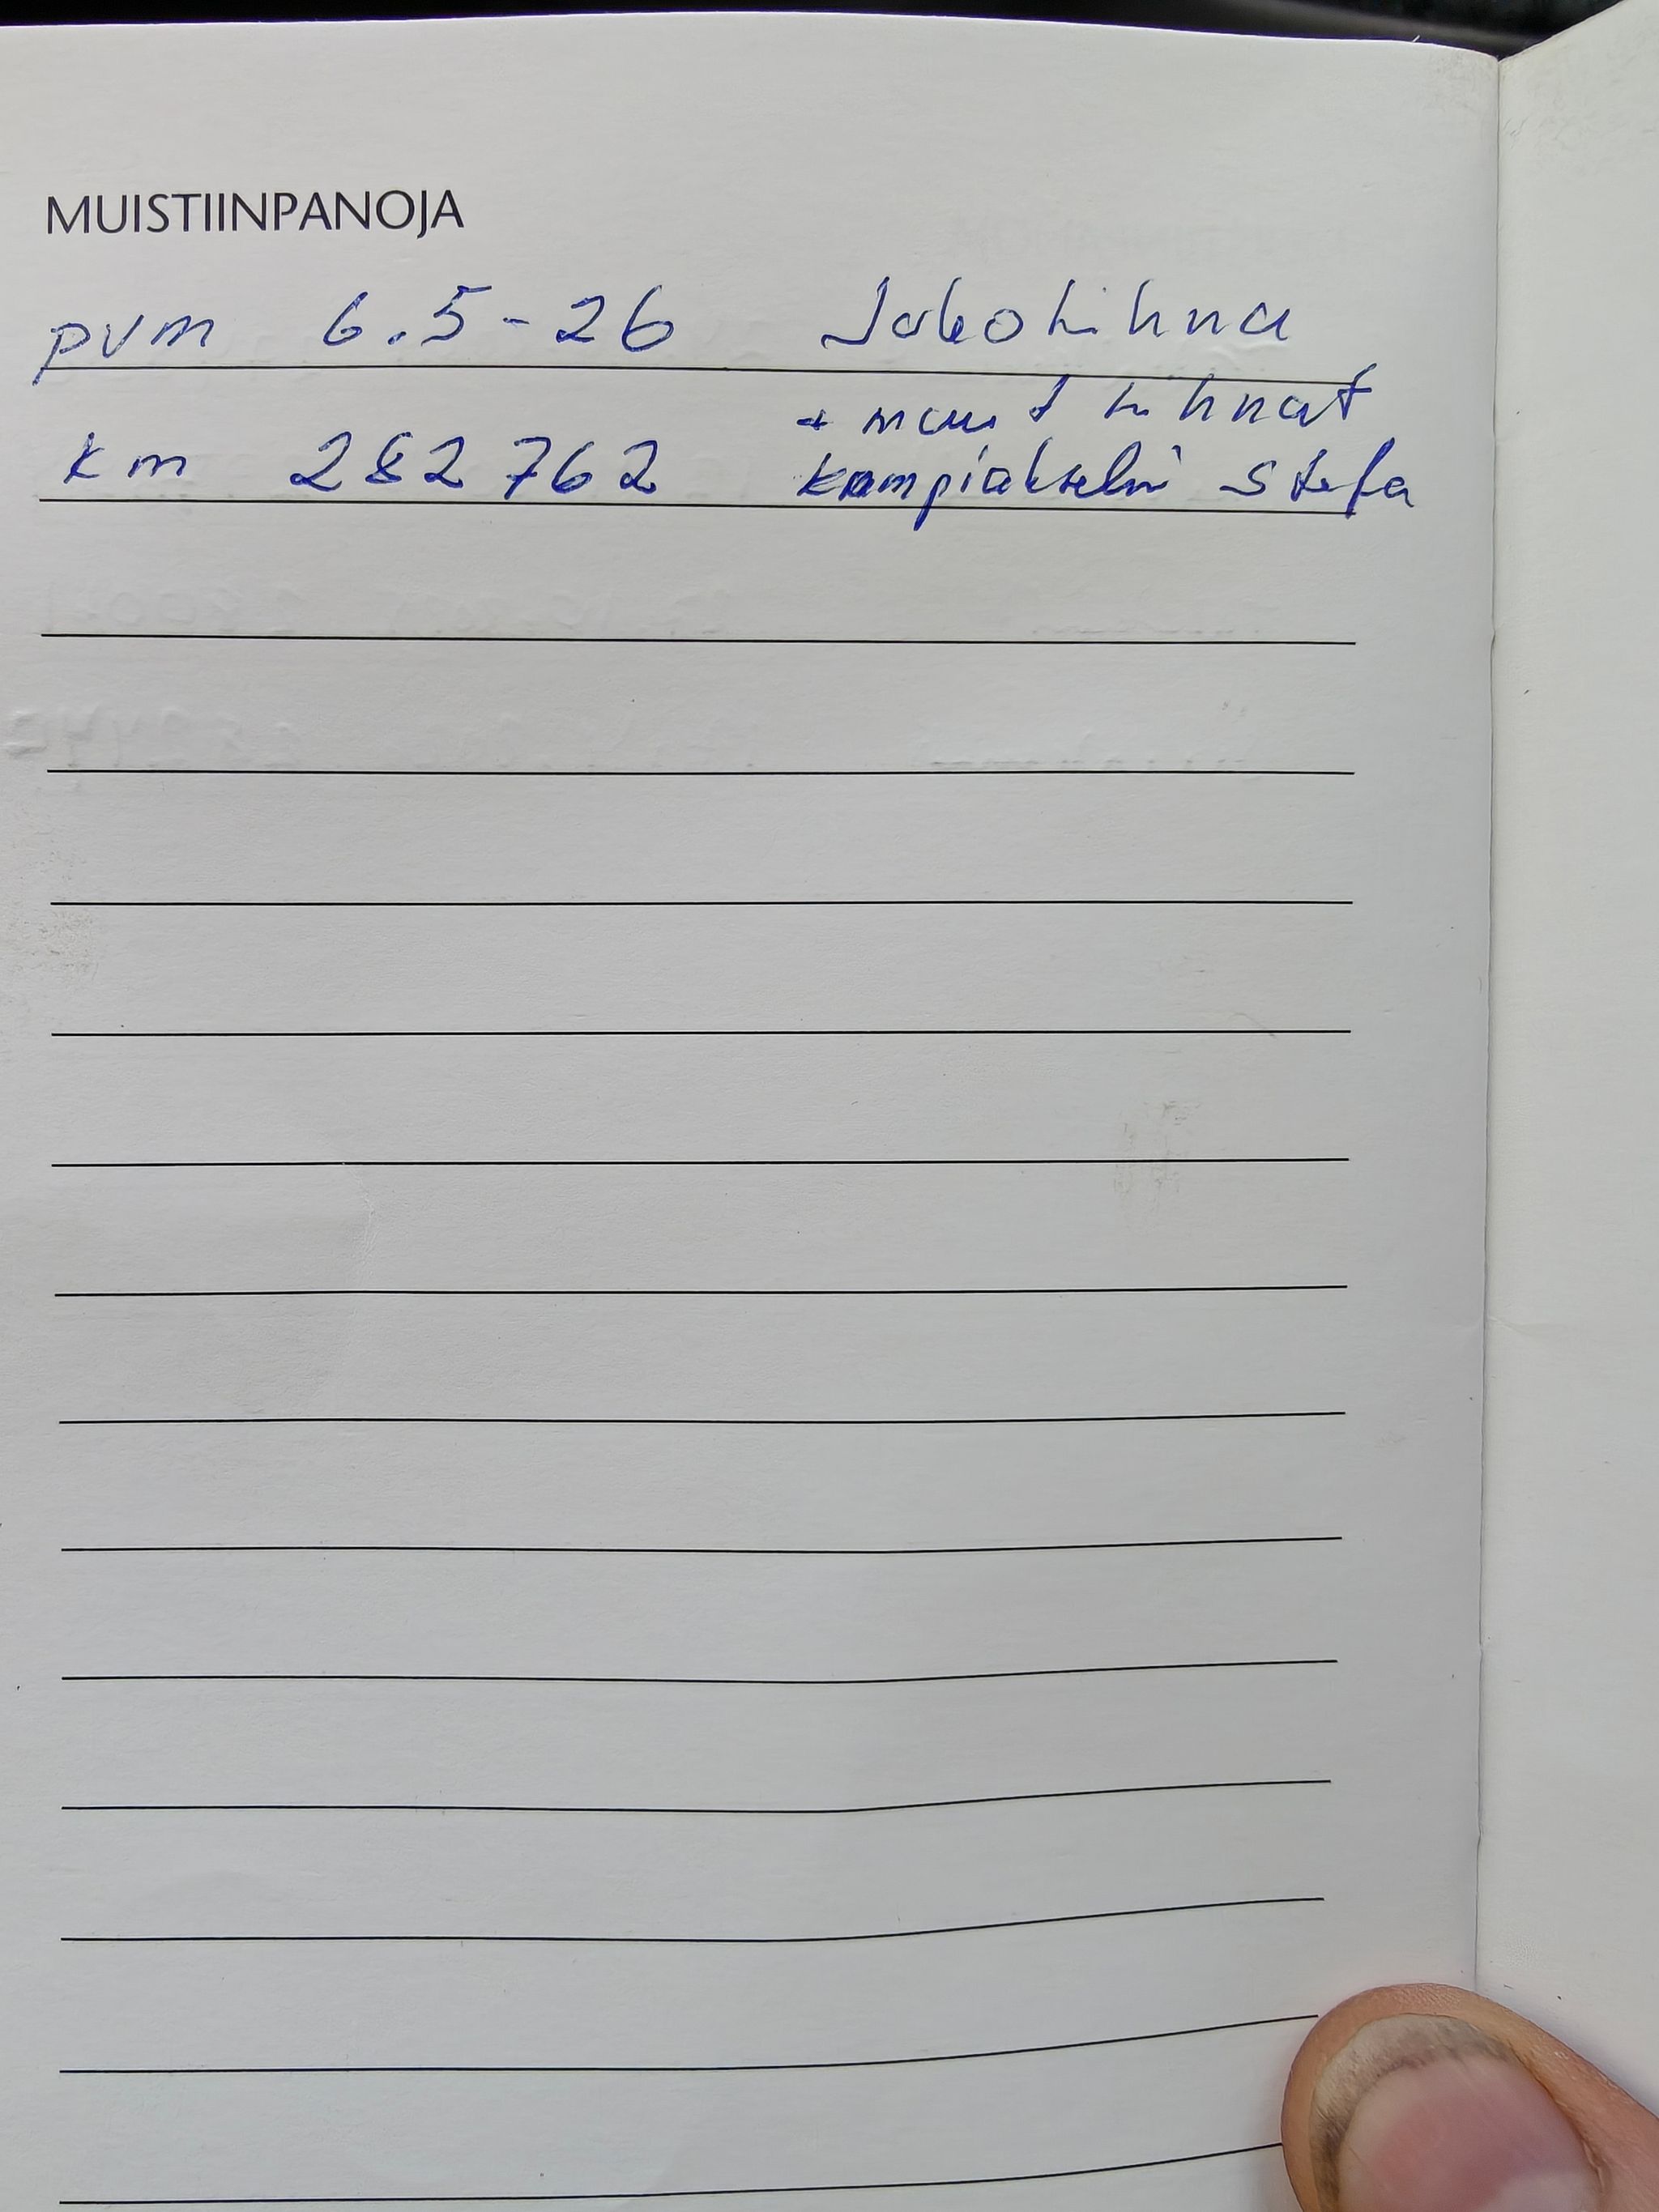 MUISTIINPANOJA
pvm 6.5-26 Jakohihna
+ muut hihnat
km 282 762 kampiakselin stefa